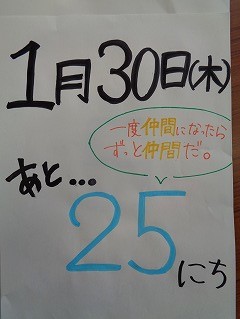 1月30日(木)
一度仲間になったら
ずっと仲間だ。
あと...
25にち